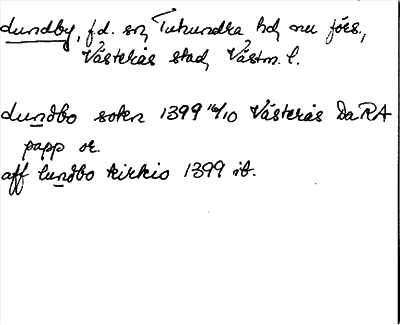 Lundby, f.d. sn, Tuhundra hd, nu förs.,
Västerås stad, Västm. l.
Lundbo sokn 1399 16/10 Västerås DaRA
papp or.
aff lundbo kirkio 1399 ib.